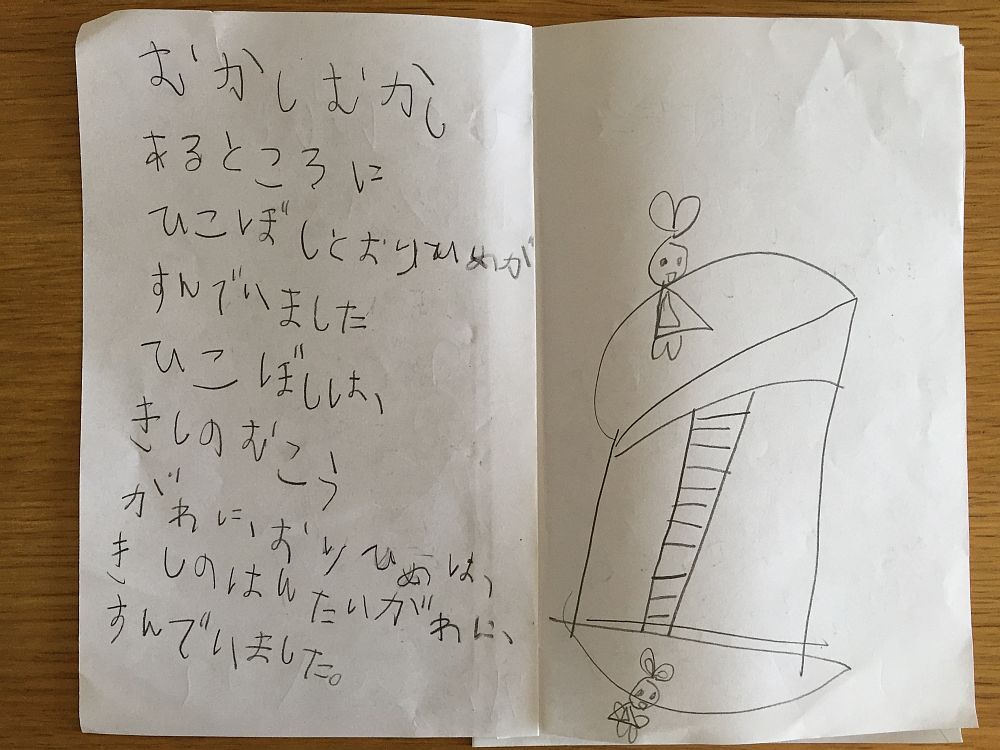 むかしむかし
あるところに
ひこぼしとおりひめが
すんでいました
ひこぼしは、
きしのむこう
がわに、おりひめは、
きしのはんたいがわに、
すんでいました。